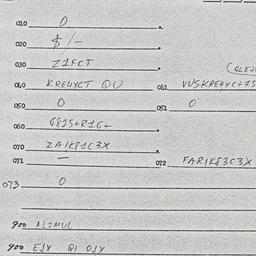 010 0
020 $/-
030 Z1FCT
040 KREHYCT QU 041 VUSKREHYCT
050 0 051 0
060 G81S+R1G+
070 ZAIK81C3X
071 — 072 FARIK83C3X
073 0
900 ALIMUL
900 EJY QI OJY